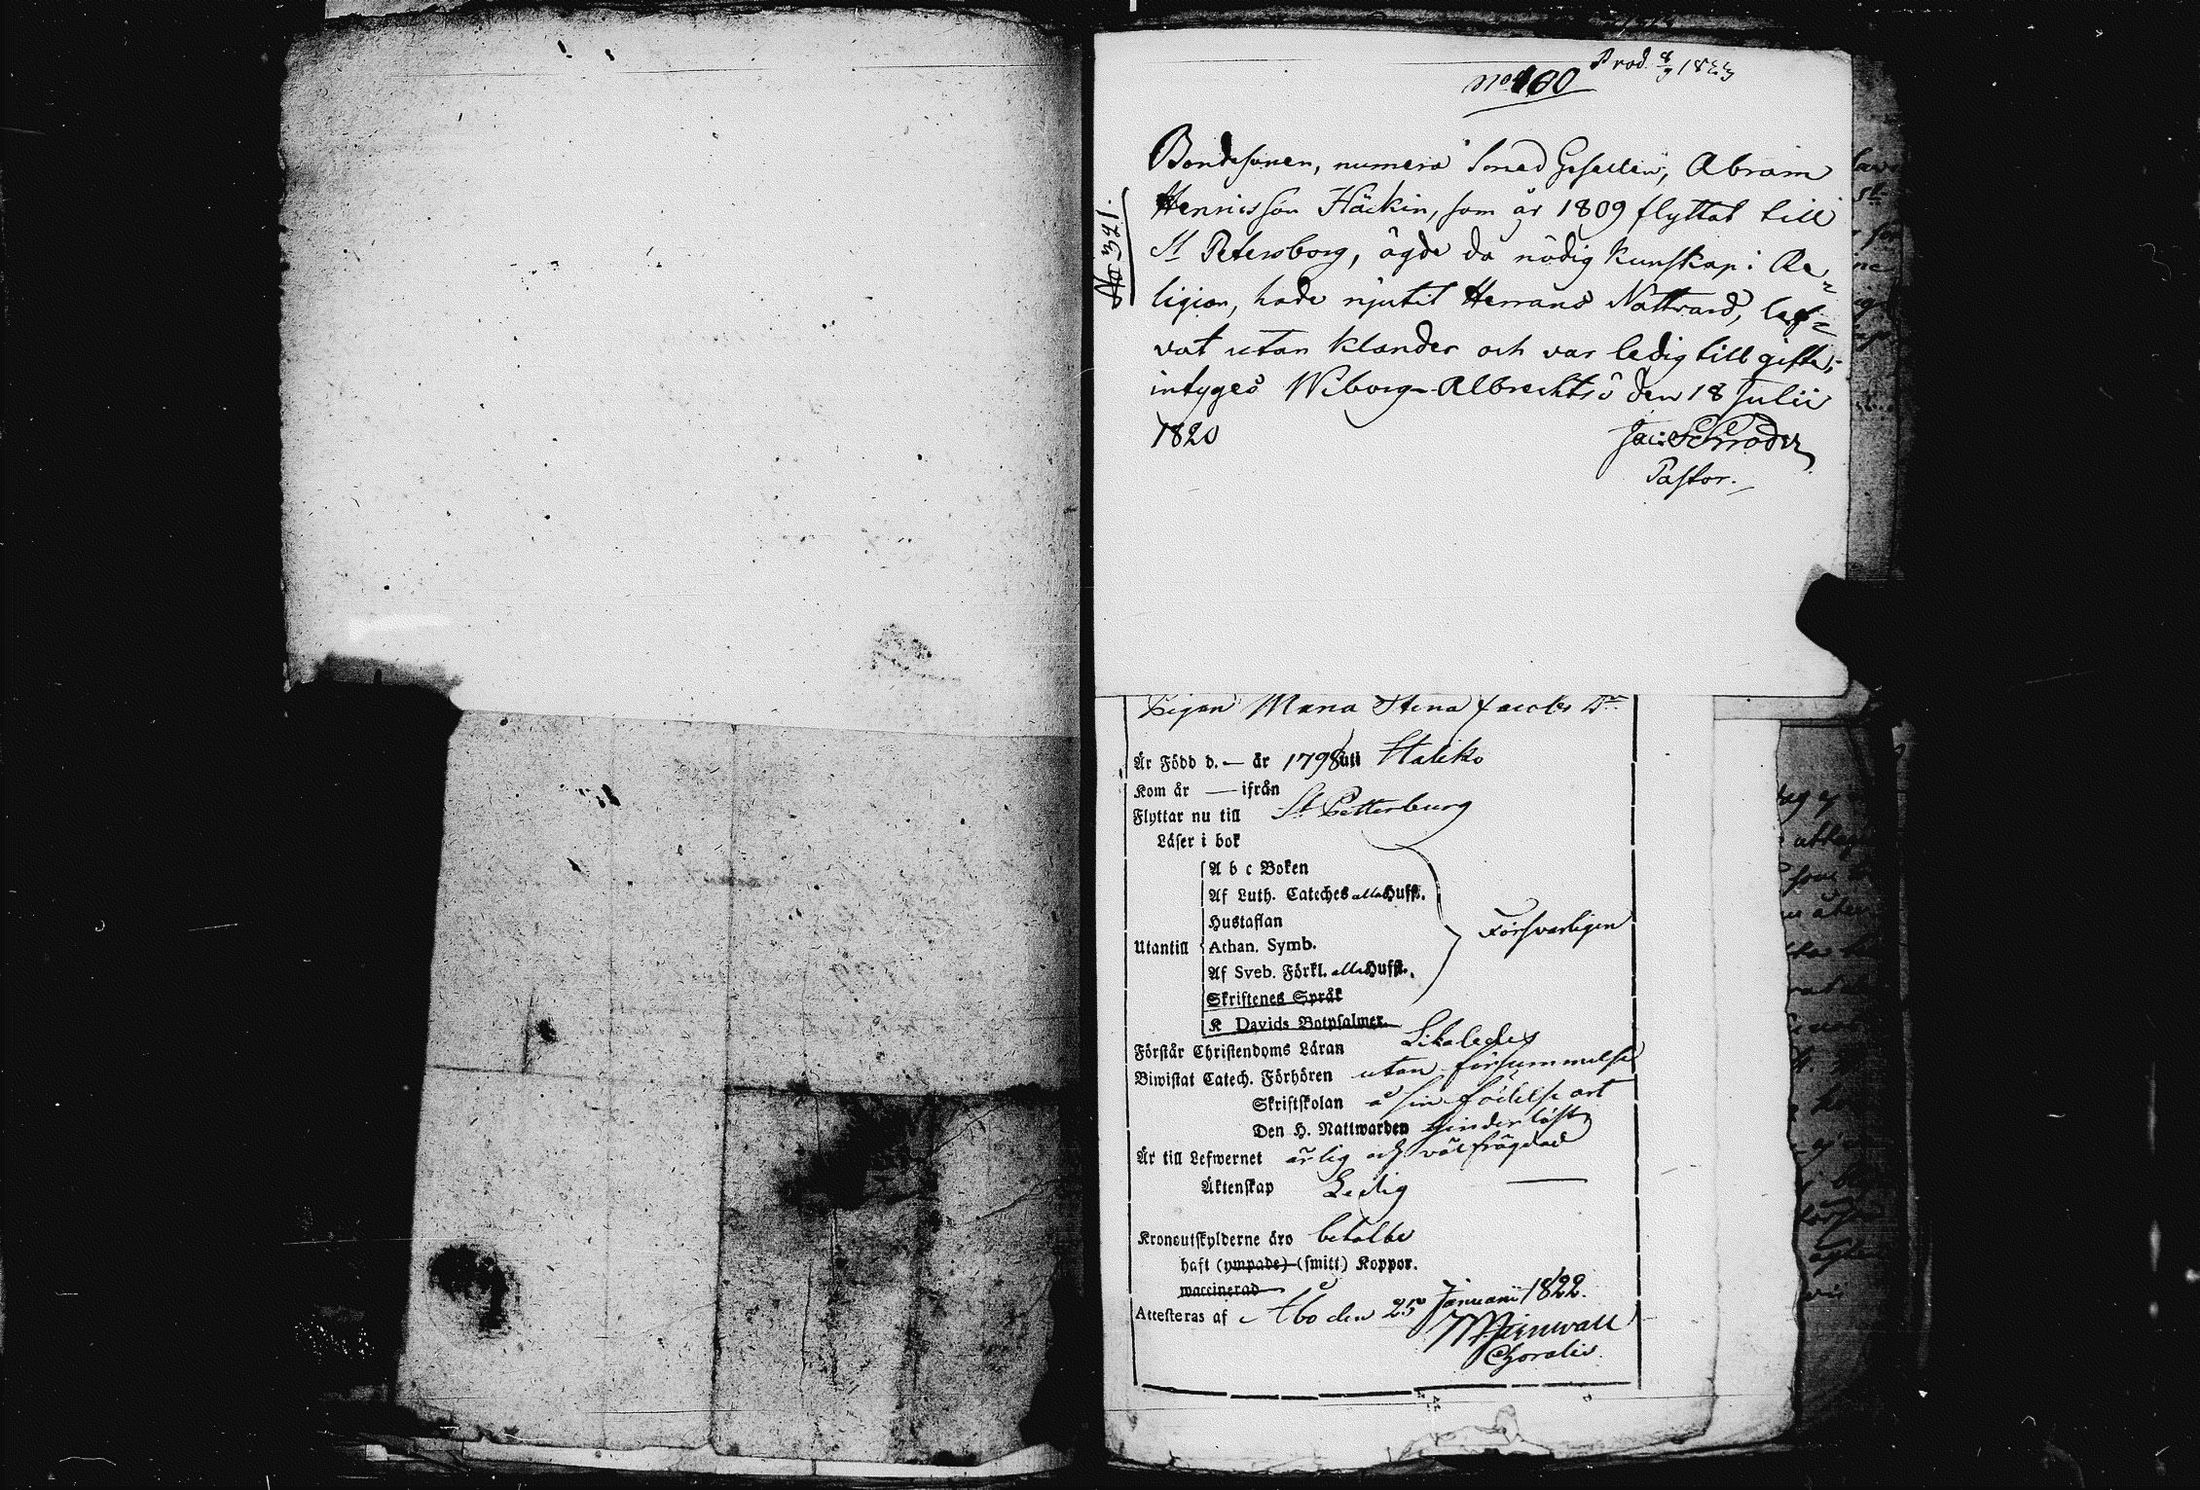 No 160 Prod. 8/9 1823
No 321.
Bondesonen, numera Smed Gesellen, Abram
Henricsson Häckin, som år 1809 flyttat till
St Petersborg, ägde då nödig kunskap i Re=
ligion, hade njutit Herrans Nattvard, lef=
vat utan klander och var ledig till gifte;
intyges Wiborg Albrechtså den 18 Julii
1820 Jac: Schröder
Pastor.
Pigan Maria Stina Jacobs Dr
Är Född d. — år 1798 uti Haliko
Kom år — ifrån
Flyttar nu till St Petterburg
Läser i bok
A b c Boken
Af Luth. Cateches alla Hufst.
Hustaflan
Utantill Athan. Symb. Försvarligen
Af Sveb. Förkl. alla Hufst.
Skriftenes Språk
K Davids Botpsalmer.
Förstår Christendoms Läran Likaledes
Biwistat Catech. Förhören utan försummelse
Skriftskolan å sin födelse ort
Den H. Nattwarden hinderlöst
Är till Lefwernet ärlig och välfrägdad
Äktenskap Ledig —
Kronoutskylderne äro betalde
haft (ympade) (smitt) Koppor.
waccinerad
Attesteras af Åbo den 25 Januarii 1822.